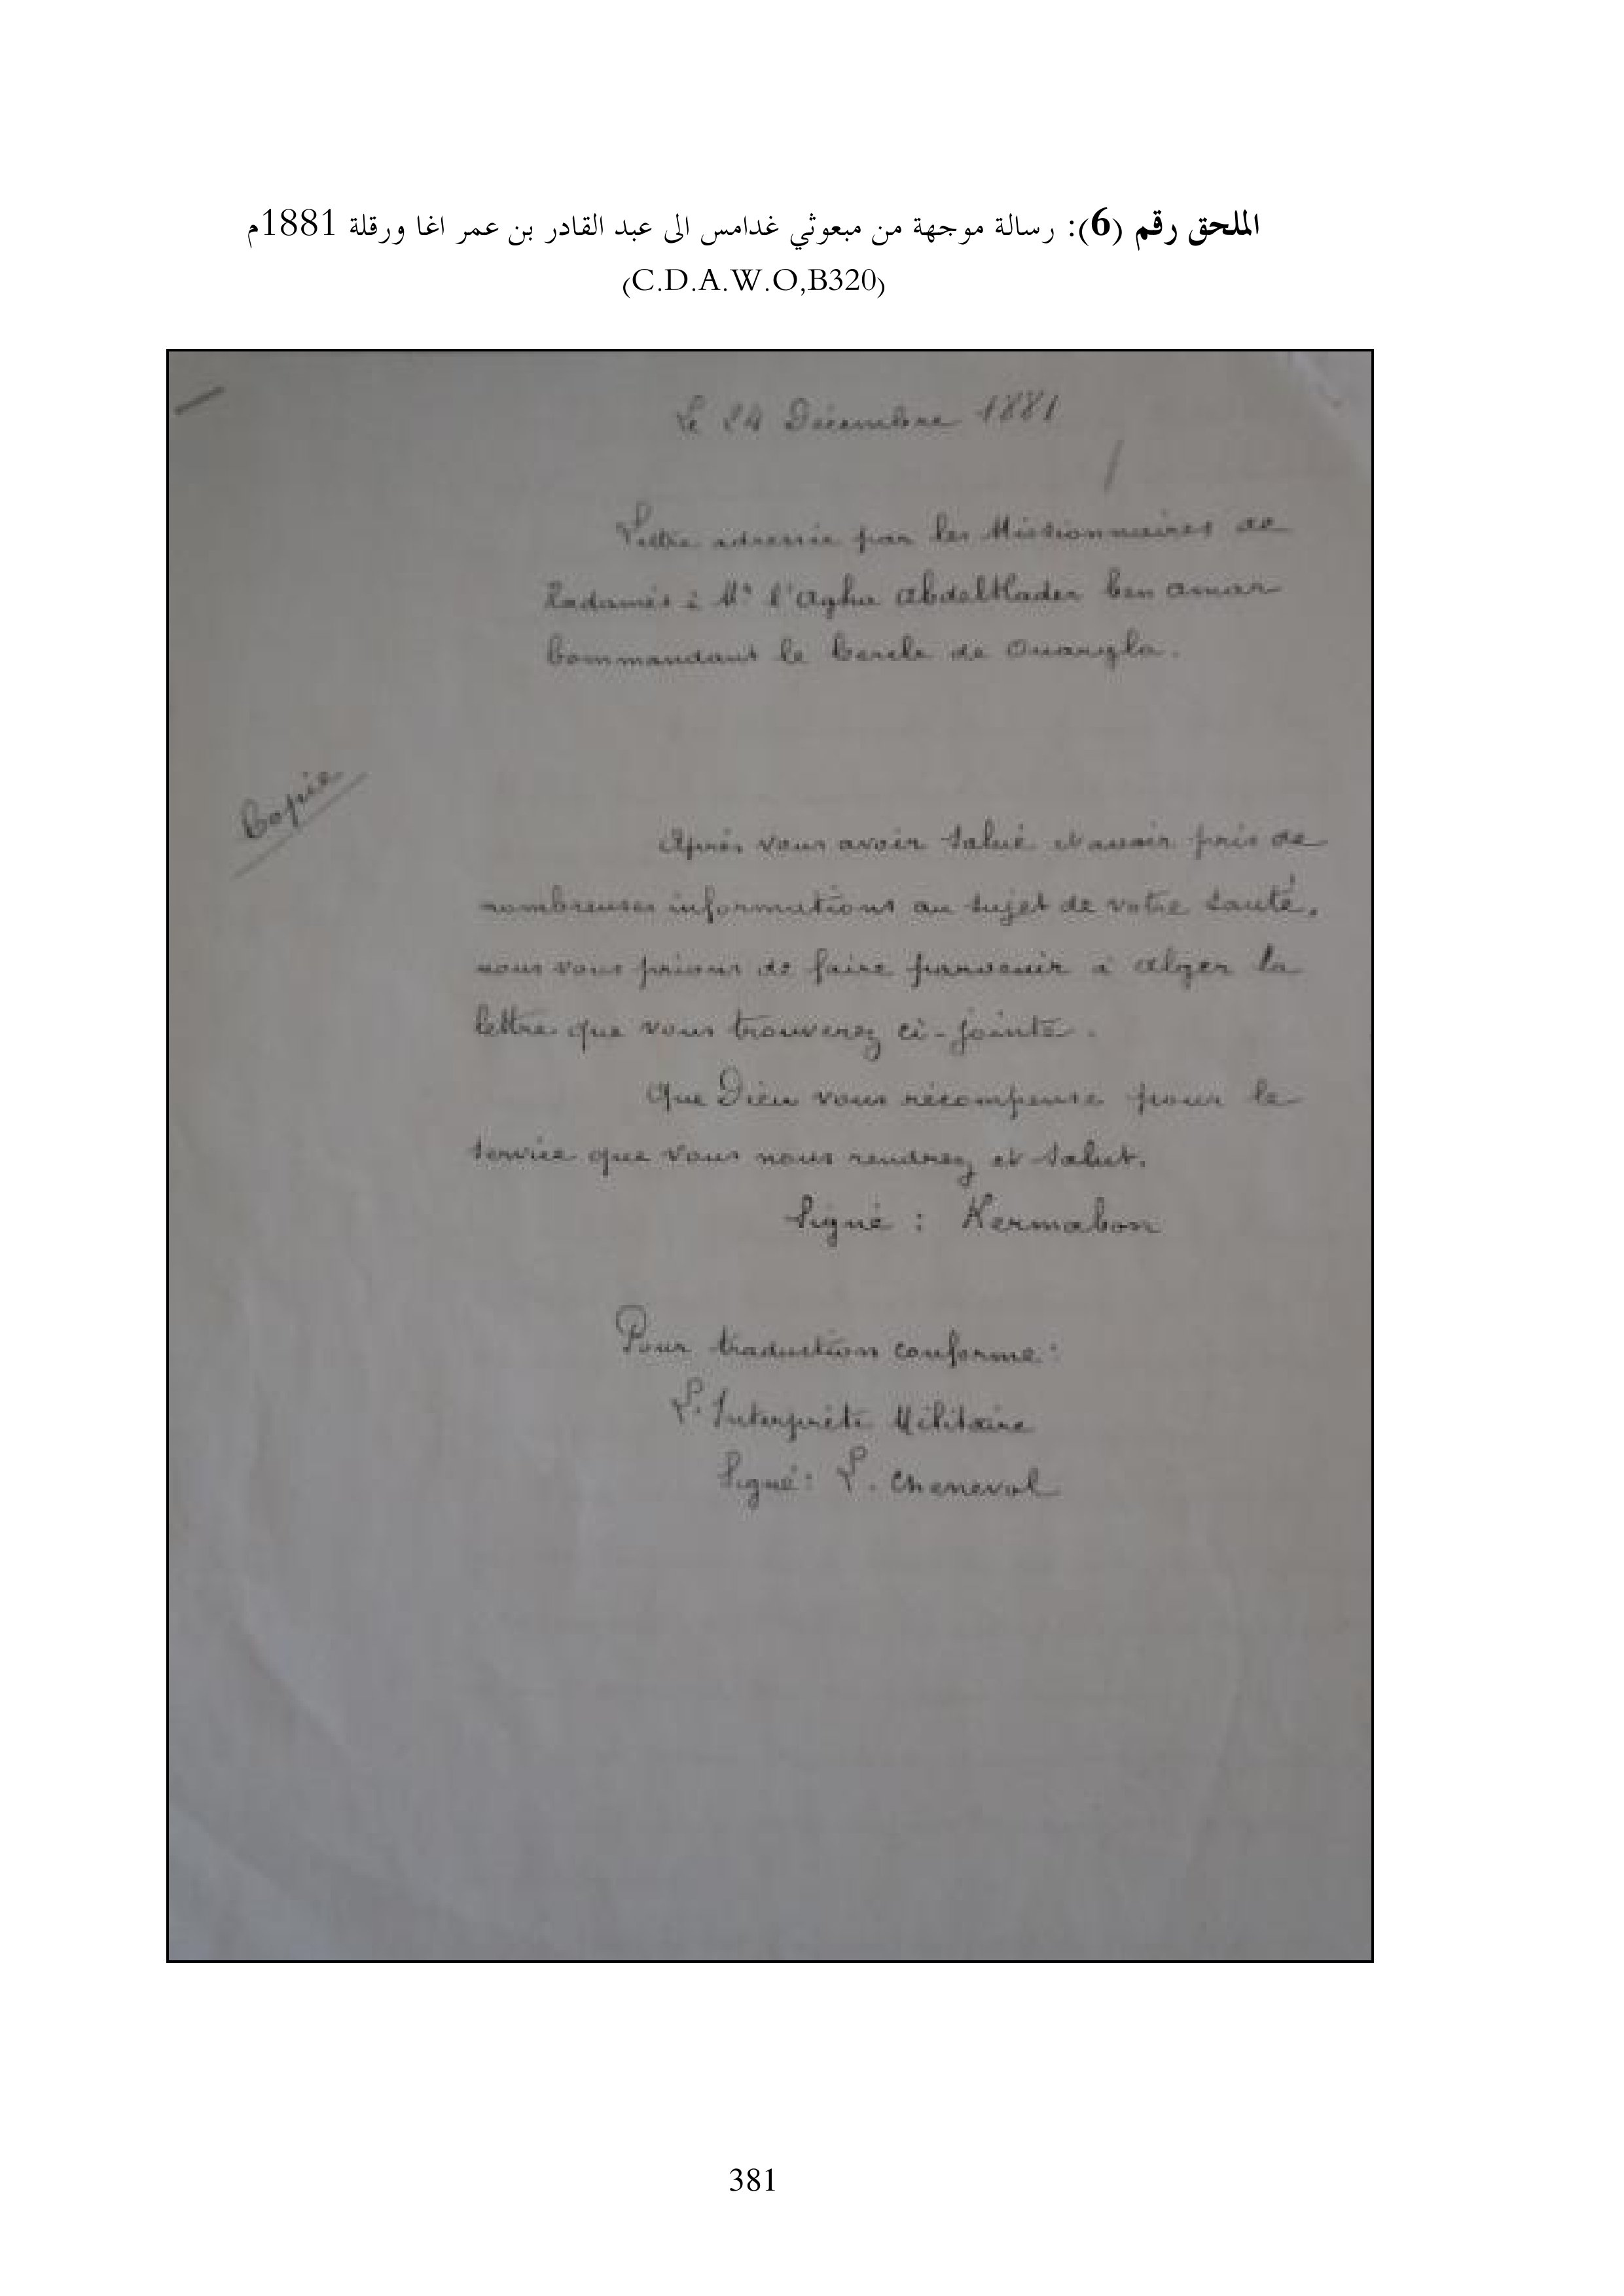 الملحق رقم (6): رسالة موجهة من مبعوثي غدامس الى عبد القادر بن عمر اغا ورقلة 1881م
(C.D.A.W.O,B320)
Le 24 Décembre 1881
Lettre adressée par les Missionnaires de
Radamès à Mr l'Agha AbdelKader ben amar
Commandant le Cercle de Ouargla.
Copie
Après vous avoir salué et avoir pris de
nombreuses informations au sujet de votre santé,
nous vous prions de faire parvenir à alger la
lettre que vous trouverez ci-jointe.
Que Dieu vous récompense pour le
service que vous nous rendrez et salut.
Signé : Kermabon
Pour traduction conforme :
L'Interprète Militaire
Signé : L. Cheneval
381